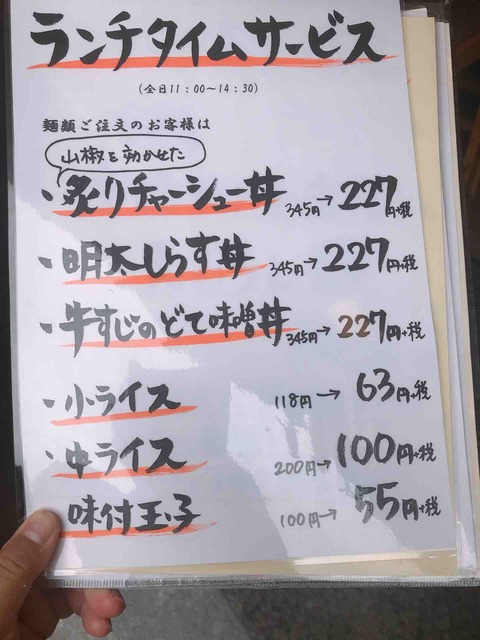 ランチタイムサービス
(全日11:00〜14:30)
麺類ご注文のお客様は
山椒を効かせた
・炙りチャーシュー丼 345円→227円+税
・明太しらす丼 345円→227円+税
・牛すじのどて味噌丼 345円→227円+税
・小ライス 118円→63円+税
・中ライス 200円→100円+税
味付玉子 100円→55円+税